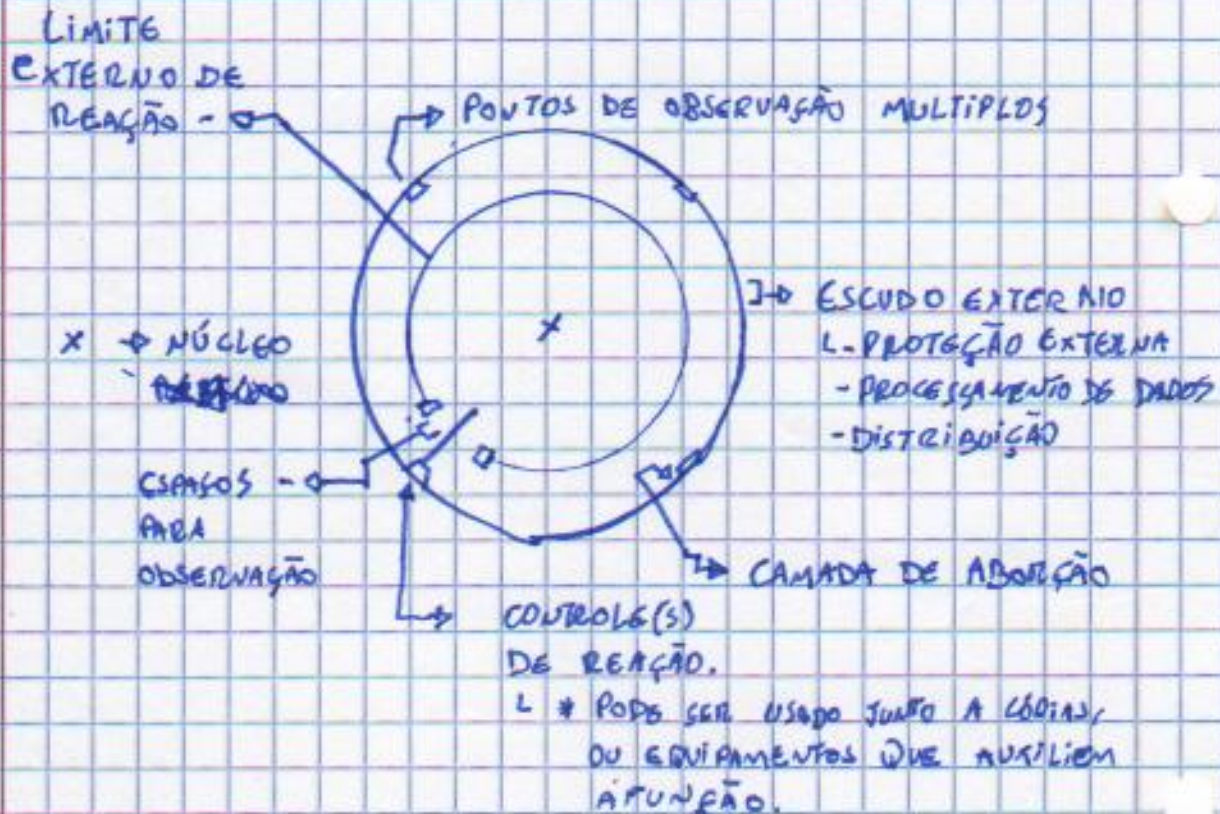 LIMITE
EXTERNO DE
REAÇÃO -
PONTOS DE OBSERVAÇÃO MULTIPLOS
ESCUDO EXTERNO
L - PROTEÇÃO EXTERNA
- PROCESSAMENTO DE DADOS
- DISTRIBUIÇÃO
X → NÚCLEO
ESPAÇOS -
PARA
OBSERVAÇÃO
CAMADA DE ABORÇÃO
CONTROLE(S)
DE REAÇÃO.
L * PODE SER USADO JUNTO A
OU EQUIPAMENTOS QUE AUXILIEM
A FUNÇÃO.